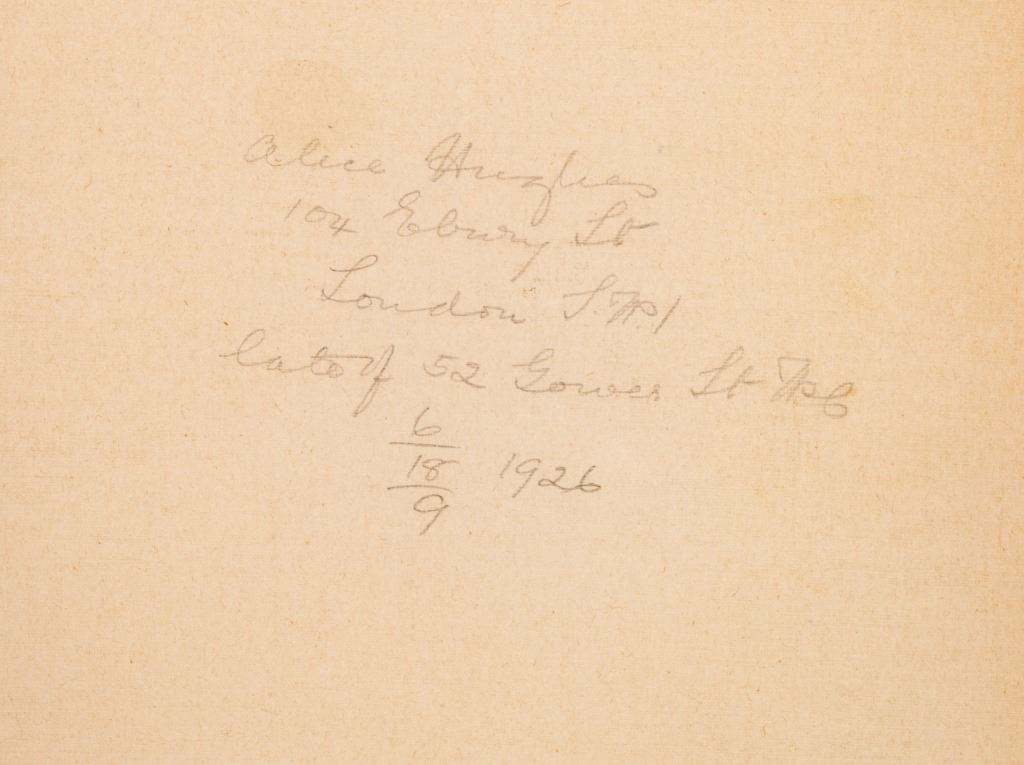 Alice Hughes
104 Ebury St
London S.W.1
late of 52 Gower St W.C
6
18 1926
9